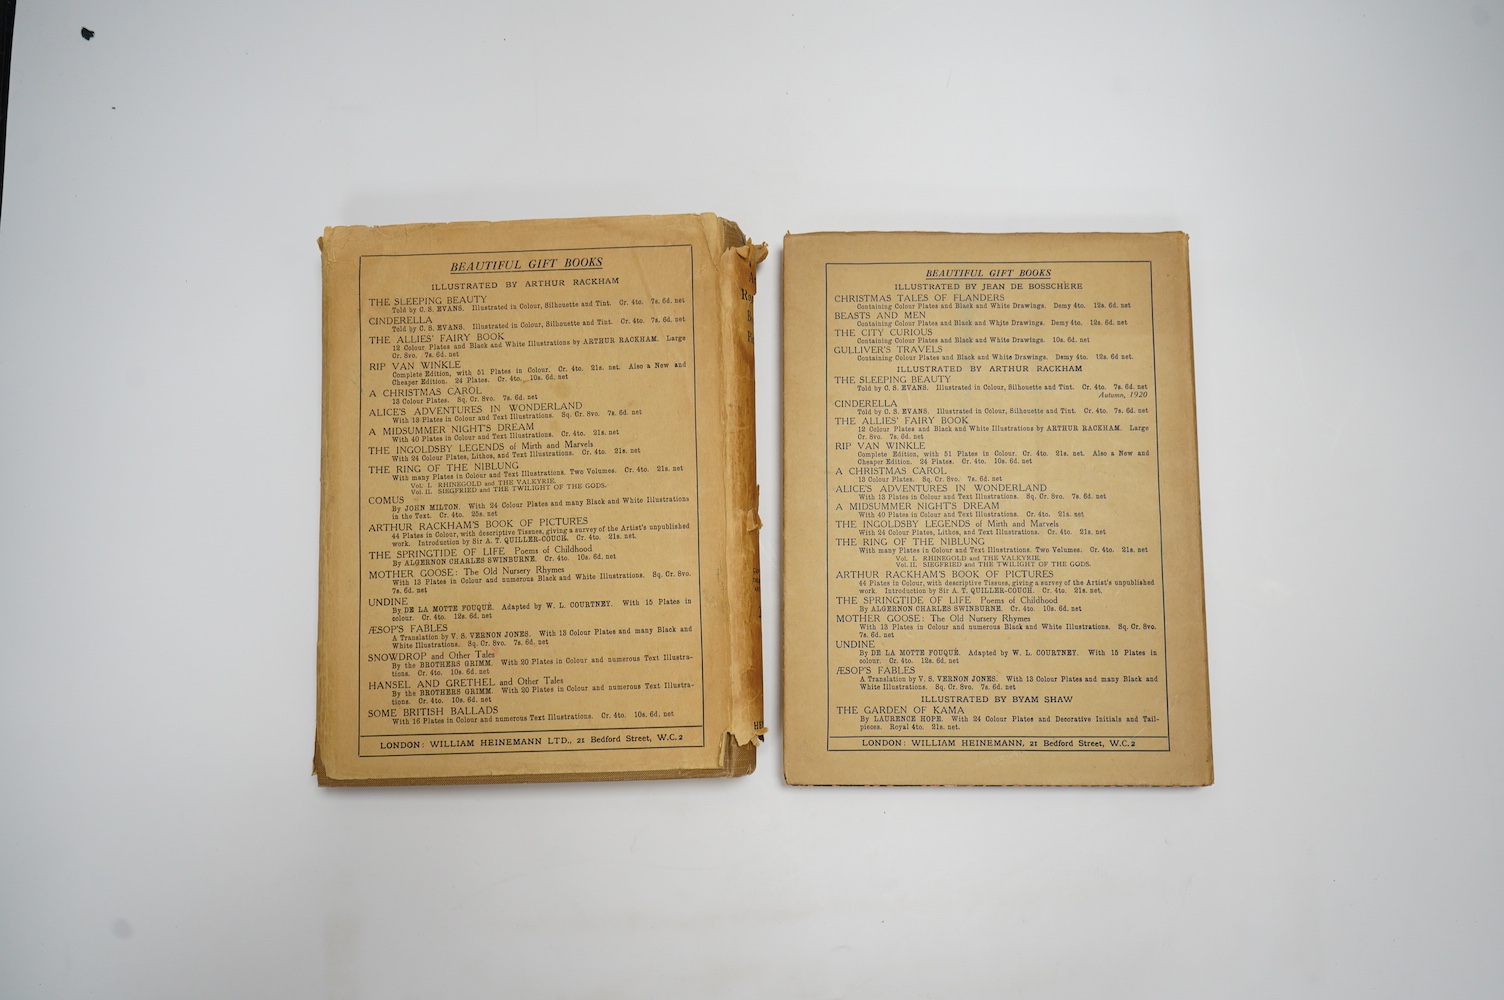 BEAUTIFUL GIFT BOOKS
ILLUSTRATED BY ARTHUR RACKHAM
THE SLEEPING BEAUTY
Told by C. S. EVANS. Illustrated in Colour, Silhouette and Tint. Cr. 4to. 7s. 6d. net
CINDERELLA
Told by C. S. EVANS. Illustrated in Colour, Silhouette and Tint. Cr. 4to. 7s. 6d. net
THE ALLIES' FAIRY BOOK
12 Colour Plates and Black and White Illustrations by ARTHUR RACKHAM. Large
Cr. 8vo. 7s. 6d. net
RIP VAN WINKLE
Complete Edition, with 51 Plates in Colour. Cr. 4to. 21s. net. Also a New and
Cheaper Edition. 24 Plates. Cr. 4to. 10s. 6d. net
A CHRISTMAS CAROL
13 Colour Plates. Sq. Cr. 8vo. 7s. 6d. net
ALICE'S ADVENTURES IN WONDERLAND
With 13 Plates in Colour and Text Illustrations. Sq. Cr. 8vo. 7s. 6d. net
A MIDSUMMER NIGHT'S DREAM
With 40 Plates in Colour and Text Illustrations. Cr. 4to. 21s. net
THE INGOLDSBY LEGENDS of Mirth and Marvels
With 24 Colour Plates, Lithos, and Text Illustrations. Cr. 4to. 21s. net
THE RING OF THE NIBLUNG
With many Plates in Colour and Text Illustrations. Two Volumes. Cr. 4to. 21s. net
Vol. I. RHINEGOLD and THE VALKYRIE.
Vol. II. SIEGFRIED and THE TWILIGHT OF THE GODS.
COMUS
By JOHN MILTON. With 24 Colour Plates and many Black and White Illustrations
in the Text. Cr. 4to. 25s. net
ARTHUR RACKHAM'S BOOK OF PICTURES
44 Plates in Colour, with descriptive Tissues, giving a survey of the Artist's unpublished
work. Introduction by Sir A. T. QUILLER-COUCH. Cr. 4to. 21s. net.
THE SPRINGTIDE OF LIFE Poems of Childhood
By ALGERNON CHARLES SWINBURNE. Cr. 4to. 10s. 6d. net
MOTHER GOOSE: The Old Nursery Rhymes
With 13 Plates in Colour and numerous Black and White Illustrations. Sq. Cr. 8vo.
7s. 6d. net
UNDINE
By DE LA MOTTE FOUQUÉ. Adapted by W. L. COURTNEY. With 15 Plates in
colour. Cr. 4to. 12s. 6d. net
ÆSOP'S FABLES
A Translation by V. S. VERNON JONES. With 13 Colour Plates and many Black and
White Illustrations. Sq. Cr. 8vo. 7s. 6d. net
SNOWDROP and Other Tales
By the BROTHERS GRIMM. With 20 Plates in Colour and numerous Text Illustra-
tions. Cr. 4to. 10s. 6d. net
HANSEL AND GRETHEL and Other Tales
By the BROTHERS GRIMM. With 20 Plates in Colour and numerous Text Illustra-
tions. Cr. 4to. 10s. 6d. net
SOME BRITISH BALLADS
With 16 Plates in Colour and numerous Text Illustrations. Cr. 4to. 10s. 6d. net
LONDON: WILLIAM HEINEMANN LTD., 21 Bedford Street, W.C.2
BEAUTIFUL GIFT BOOKS
ILLUSTRATED BY JEAN DE BOSSCHÈRE
CHRISTMAS TALES OF FLANDERS
Containing Colour Plates and Black and White Drawings. Demy 4to. 12s. 6d. net
BEASTS AND MEN
Containing Colour Plates and Black and White Drawings. Demy 4to. 12s. 6d. net
THE CITY CURIOUS
Containing Colour Plates and Black and White Drawings. 10s. 6d. net
GULLIVER'S TRAVELS
Containing Colour Plates and Black and White Drawings. Demy 4to. 12s. 6d net.
ILLUSTRATED BY ARTHUR RACKHAM
THE SLEEPING BEAUTY
Told by C. S. EVANS. Illustrated in Colour, Silhouette and Tint. Cr. 4to. 7s. 6d. net
Autumn, 1920
CINDERELLA
Told by C. S. EVANS. Illustrated in Colour, Silhouette and Tint. Cr. 4to. 7s. 6d. net
THE ALLIES' FAIRY BOOK
12 Colour Plates and Black and White Illustrations by ARTHUR RACKHAM. Large
Cr. 8vo. 7s. 6d. net
RIP VAN WINKLE
Complete Edition, with 51 Plates in Colour. Cr. 4to. 21s. net. Also a New and
Cheaper Edition. 24 Plates. Cr. 4to. 10s. 6d. net
A CHRISTMAS CAROL
13 Colour Plates. Sq. Cr. 8vo. 7s. 6d. net
ALICE'S ADVENTURES IN WONDERLAND
With 13 Plates in Colour and Text Illustrations. Sq. Cr. 8vo. 7s. 6d. net
A MIDSUMMER NIGHT'S DREAM
With 40 Plates in Colour and Text Illustrations. Cr. 4to. 21s. net
THE INGOLDSBY LEGENDS of Mirth and Marvels
With 24 Colour Plates, Lithos, and Text Illustrations. Cr. 4to. 21s. net
THE RING OF THE NIBLUNG
With many Plates in Colour and Text Illustrations. Two Volumes. Cr. 4to. 21s. net
Vol. I. RHINEGOLD and THE VALKYRIE.
Vol. II. SIEGFRIED and THE TWILIGHT OF THE GODS.
ARTHUR RACKHAM'S BOOK OF PICTURES
44 Plates in Colour, with descriptive Tissues, giving a survey of the Artist's unpublished
work. Introduction by Sir A. T. QUILLER-COUCH. Cr. 4to. 21s. net.
THE SPRINGTIDE OF LIFE Poems of Childhood
By ALGERNON CHARLES SWINBURNE. Cr. 4to. 10s. 6d. net
MOTHER GOOSE: The Old Nursery Rhymes
With 13 Plates in Colour and numerous Black and White Illustrations. Sq. Cr. 8vo.
7s. 6d. net
UNDINE
By DE LA MOTTE FOUQUÉ. Adapted by W. L. COURTNEY. With 15 Plates in
colour. Cr. 4to. 12s. 6d. net
ÆSOP'S FABLES
A Translation by V. S. VERNON JONES. With 13 Colour Plates and many Black and
White Illustrations. Sq. Cr. 8vo. 7s. 6d. net
ILLUSTRATED BY BYAM SHAW
THE GARDEN OF KAMA
By LAURENCE HOPE. With 24 Colour Plates and Decorative Initials and Tail-
pieces. Royal 4to. 21s. net.
LONDON: WILLIAM HEINEMANN, 21 Bedford Street, W.C.2